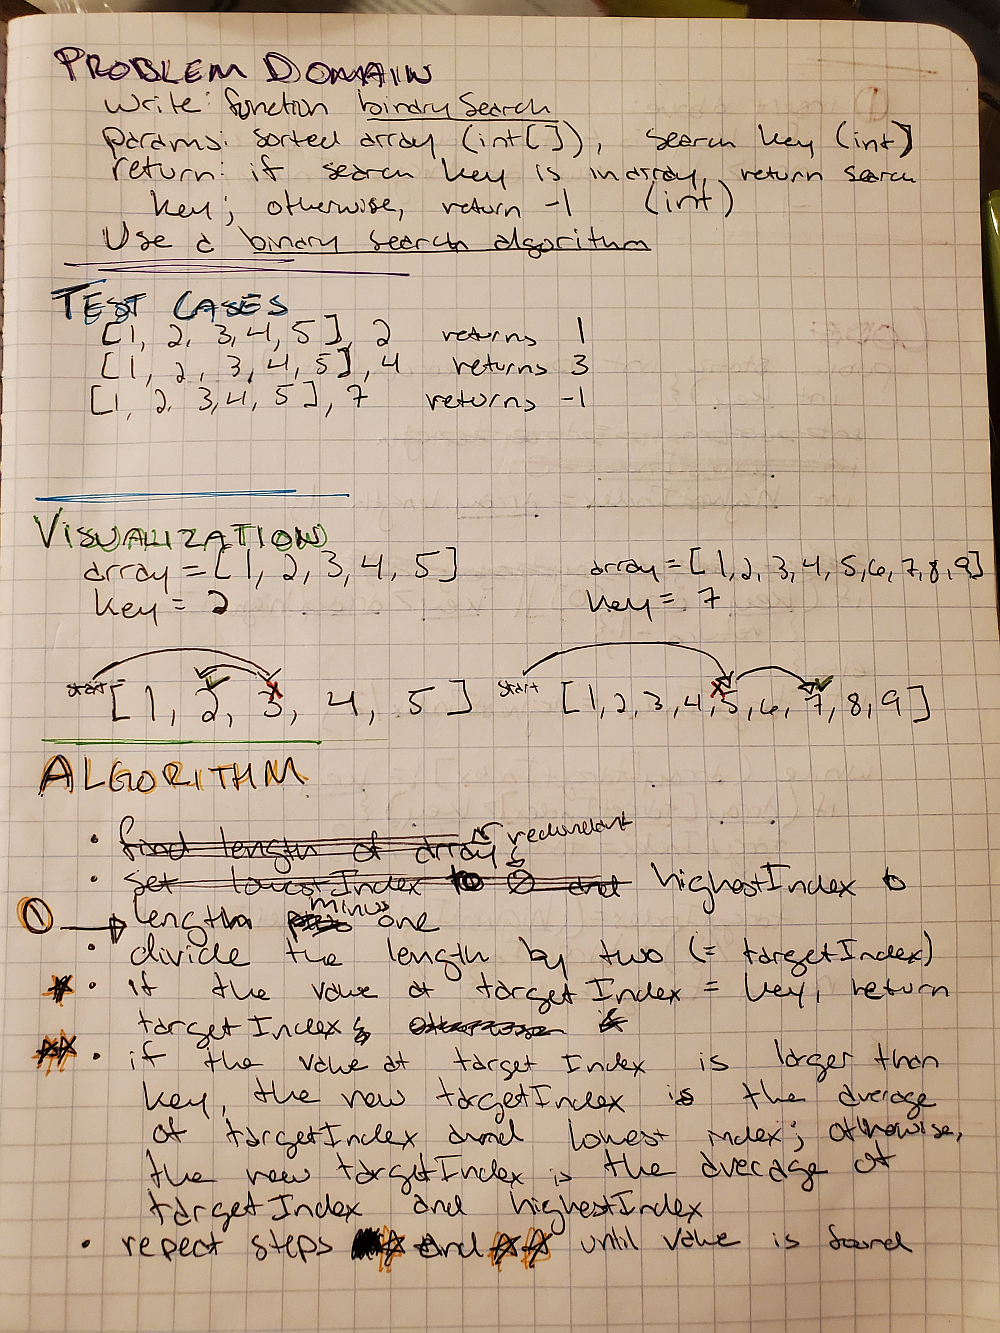 PROBLEM DOMAIN
write: function binarySearch
params: sorted array (int[]), search key (int)
return: if search key is in array, return search
key; otherwise, return -1 (int)
Use a binary search algorithm
TEST CASES
[1, 2, 3, 4, 5], 2 returns 1
[1, 2, 3, 4, 5], 4 returns 3
[1, 2, 3, 4, 5], 7 returns -1
VISUALIZATION
array = [1, 2, 3, 4, 5]
key = 2
array = [1, 2, 3, 4, 5, 6, 7, 8, 9]
key = 7
start [1, 2, 3, 4, 5]
start [1, 2, 3, 4, 5, 6, 7, 8, 9]
ALGORITHM
• find length of array redundant
• set lowestIndex to 0 and highestIndex to
① length minus one
• divide the length by two (= targetIndex)
* • if the value at targetIndex = key, return
targetIndex; otherwise
** • if the value at target Index is larger than
key, the new targetIndex is the average
of targetIndex and lowest index; otherwise,
the new targetIndex is the average of
targetIndex and highestIndex
• repeat steps * and ** until value is found